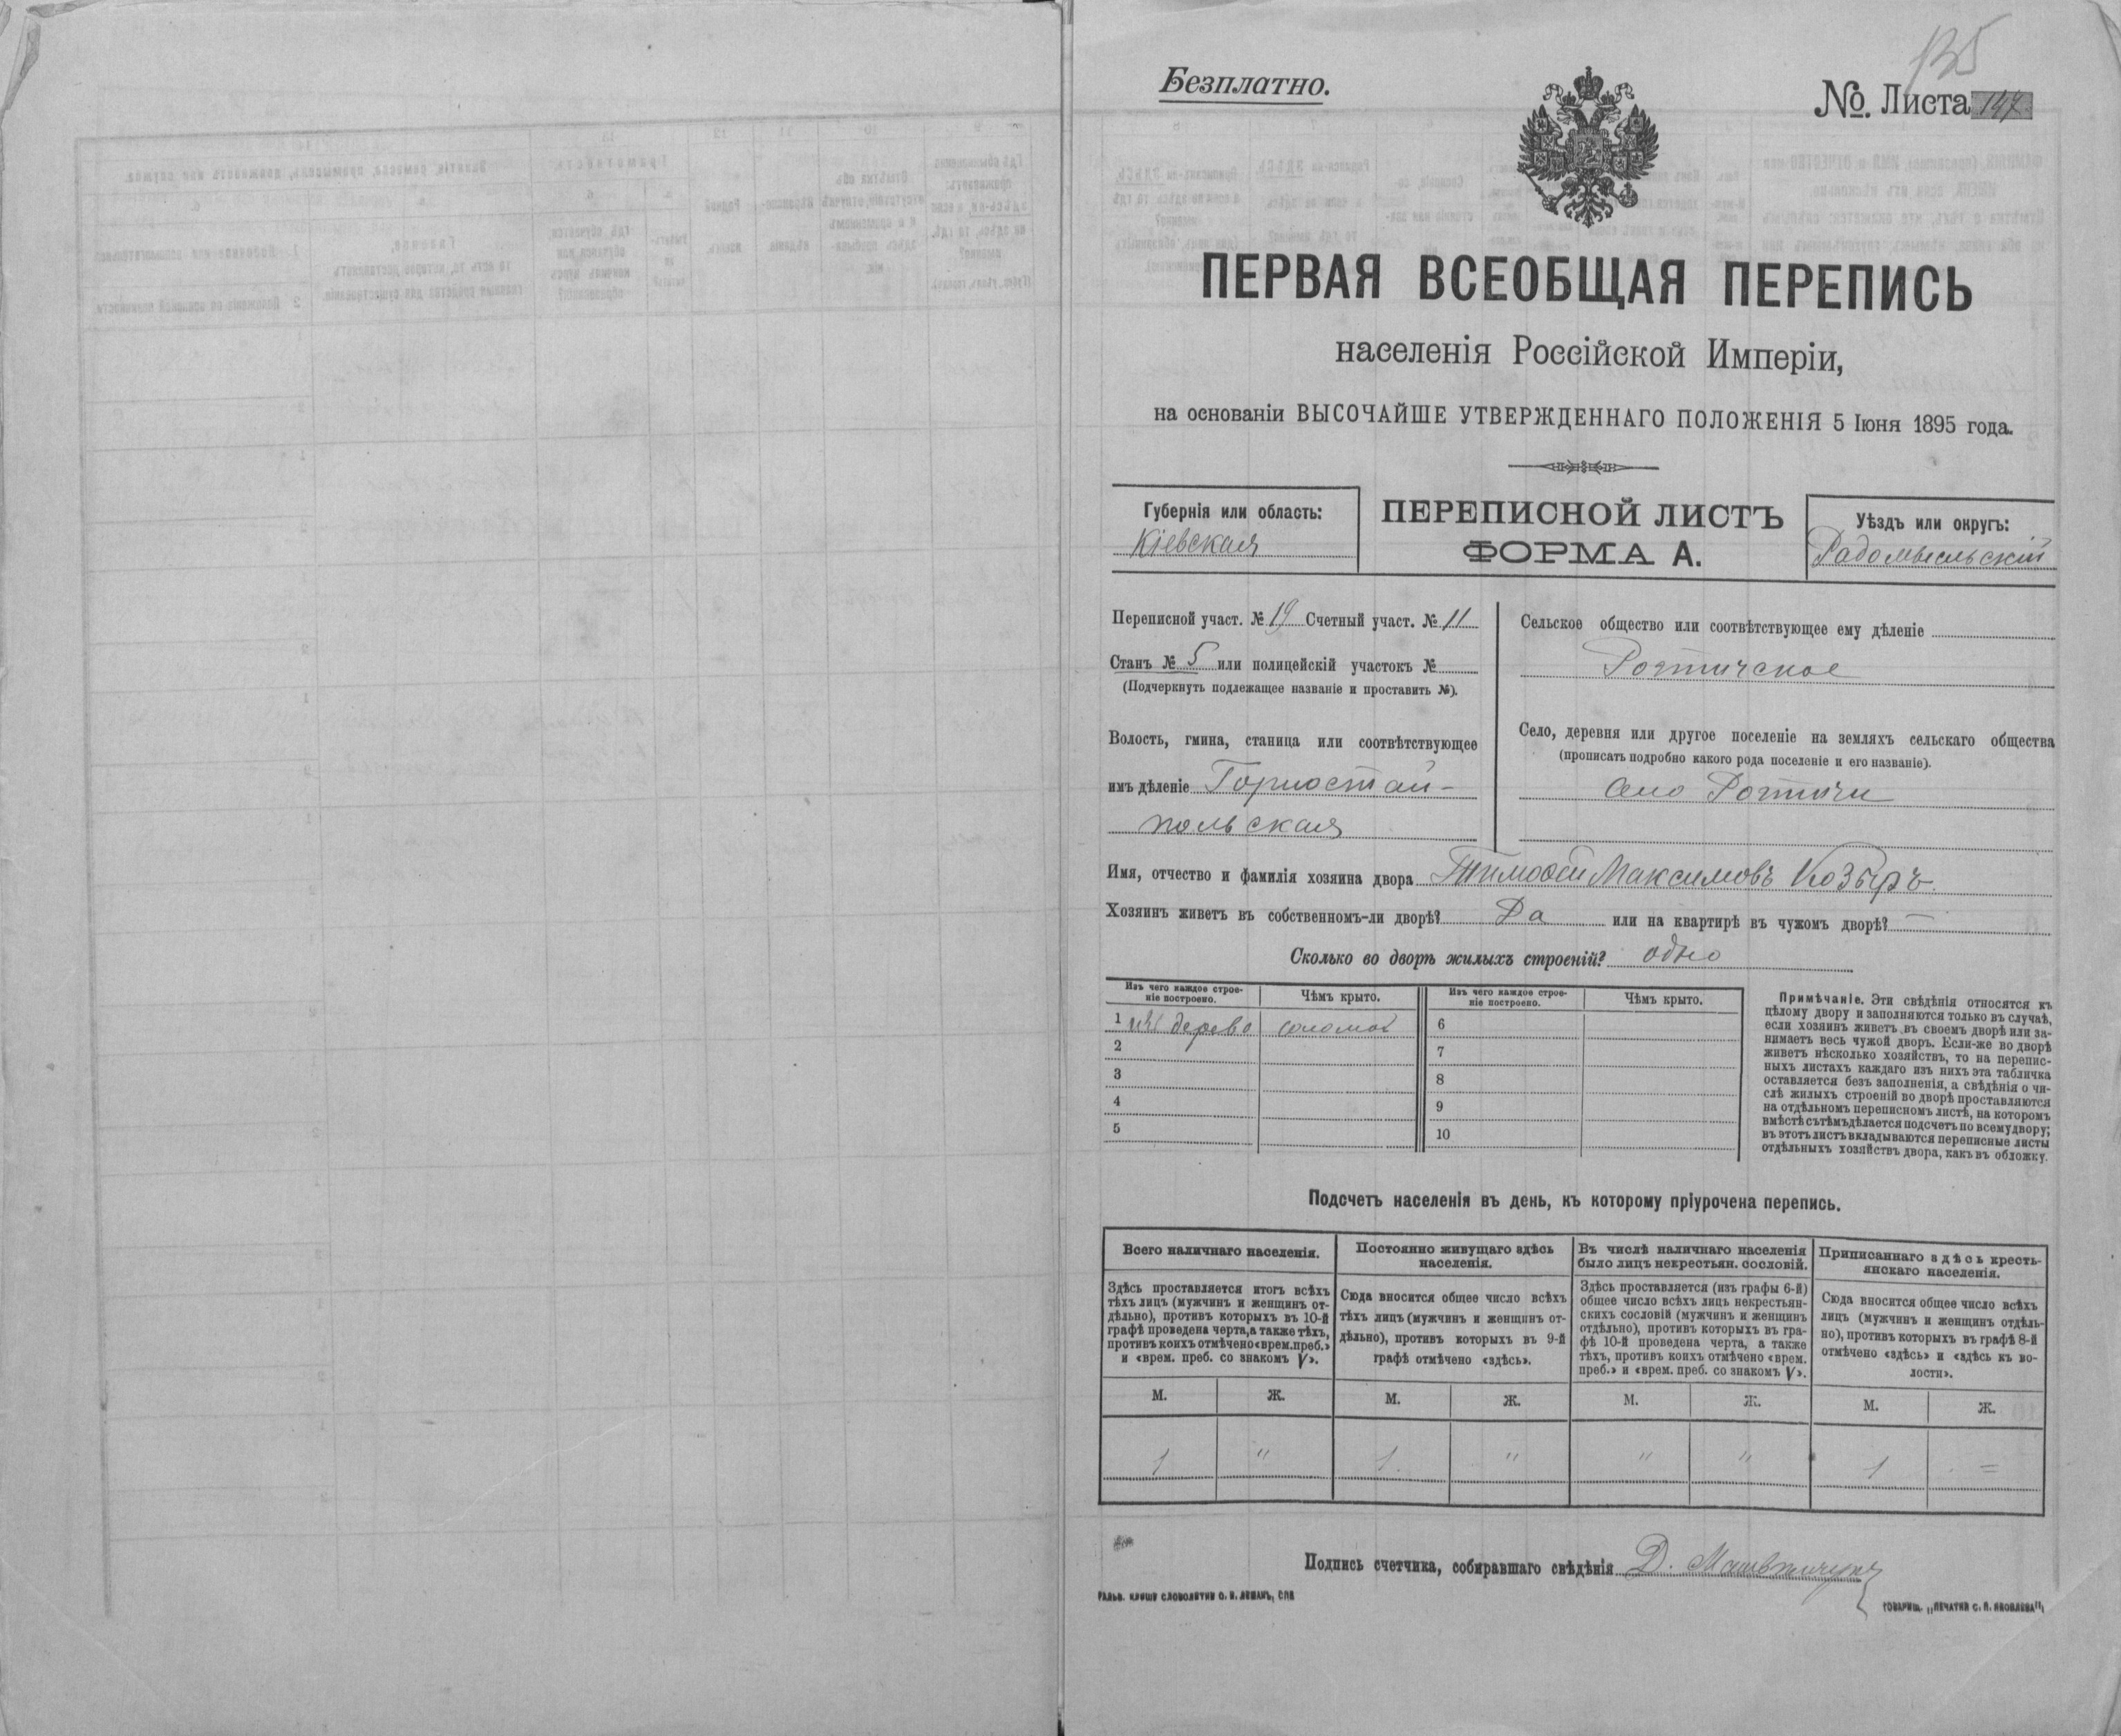 135
Безплатно.
№ Листа 147
ПЕРВАЯ ВСЕОБЩАЯ ПЕРЕПИСЬ
населенія Россійской Имперіи,
на основаніи ВЫСОЧАЙШЕ УТВЕРЖДЕННАГО ПОЛОЖЕНІЯ 5 Іюня 1895 года.
Губернія или область:
Кіевская
ПЕРЕПИСНОЙ ЛИСТЪ
ФОРМА А.
Уѣздъ или округъ:
Радомысльскій
Переписной участ. № 19 Счетный участ. № 11
Станъ № 5 или полицейскій участокъ №
(Подчеркнуть подлежащее названіе и проставить №).
Волость, гмина, станица или соотвѣтствующее
имъ дѣленіе Горностай-
польская
Сельское общество или соотвѣтствующее ему дѣленіе
Село, деревня или другое поселеніе на земляхъ сельскаго общества
(прописать подробно какого рода поселеніе и его названіе).
село
Имя, отчество и фамилія хозяина двора Тимофей Максимовъ Козырь.
Хозяинъ живетъ въ собственномъ-ли дворѣ? Да или на квартирѣ въ чужомъ дворѣ? —
Сколько во дворѣ жилыхъ строеній? одно
Изъ чего каждое строе-
ніе построено.
Чѣмъ крыто.
Изъ чего каждое строе-
ніе построено.
Чѣмъ крыто.
1 изъ дерева соломой
2
3
4
5
6
7
8
9
10
Примѣчаніе. Эти свѣдѣнія относятся къ
цѣлому двору и заполняются только въ случаѣ,
если хозяинъ живетъ въ своемъ дворѣ или за-
нимаетъ весь чужой дворъ. Если-же во дворѣ
живетъ нѣсколько хозяйствъ, то на перепис-
ныхъ листахъ каждаго изъ нихъ эта табличка
оставляется безъ заполненія, а свѣдѣнія о чи-
слѣ жилыхъ строеній во дворѣ проставляются
на отдѣльномъ переписномъ листѣ, на которомъ
вмѣстѣ съ тѣмъ дѣлается подсчетъ по всему двору;
въ этотъ листъ вкладываются переписные листы
отдѣльныхъ хозяйствъ двора, какъ въ обложку.
Подсчетъ населенія въ день, къ которому пріурочена перепись.
Всего наличнаго населенія.
Здѣсь проставляется итогъ всѣхъ
тѣхъ лицъ (мужчинъ и женщинъ от-
дѣльно), противъ которыхъ въ 10-й
графѣ проведена черта, а также тѣхъ,
противъ коихъ отмѣчено «врем. преб.»
и «врем. преб. со знакомъ V».
Постоянно живущаго здѣсь
населенія.
Сюда вносится общее число всѣхъ
тѣхъ лицъ (мужчинъ и женщинъ от-
дѣльно), противъ которыхъ въ 9-й
графѣ отмѣчено «здѣсь».
Въ числѣ наличнаго населенія
было лицъ некрестьян. сословій.
Здѣсь проставляется (изъ графы 6-й)
общее число всѣхъ лицъ некрестьян-
скихъ сословій (мужчинъ и женщинъ
отдѣльно), противъ которыхъ въ гра-
фѣ 10-й проведена черта, а также
тѣхъ, противъ коихъ отмѣчено «врем.
преб.» и «врем. преб. со знакомъ V».
Приписаннаго здѣсь кресть-
янскаго населенія.
Сюда вносится общее число всѣхъ
лицъ (мужчинъ и женщинъ отдѣль-
но), противъ которыхъ въ графѣ 8-й
отмѣчено «здѣсь» и «здѣсь къ во-
лости».
М. Ж. М. Ж. М. Ж. М. Ж.
1 " 1 " " " 1 =
Подпись счетчика, собиравшаго свѣдѣнія Д.
ГАЛЬВ. КЛИШЕ СЛОВОЛИТНИ О. И. ЛЕМАНЪ, СПБ
ТОВАРИЩ. „ПЕЧАТНЯ С. П. ЯКОВЛЕВА“